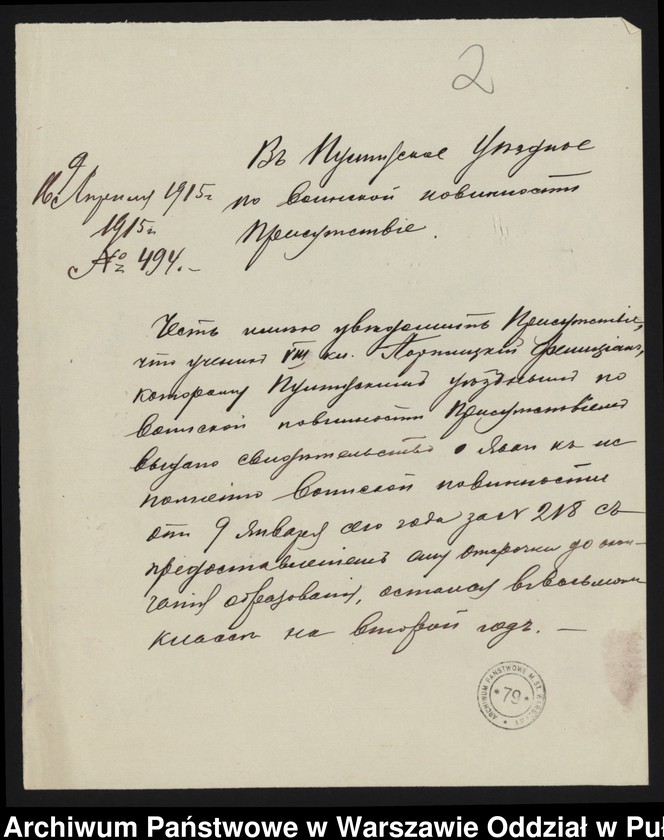 2
Въ Пултуское Уѣздное
по воинской повинности
Присутствіе.
9
Апрѣля 1915г
1915г.
№ 494.-
Честь имѣю увѣдомить Присутствіе,
что ученикъ VIII кл. Фелиціанъ,
которому Пултускимъ уѣзднымъ по
воинской повинности Присутствіемъ
выдано свидѣтельство о явкѣ къ ис
полненію воинской повинности
отъ 9 Января сего года за № 218 съ
предоставленіемъ ему отсрочки до окон-
чанія образованія, остался въ восьмомъ
классѣ на второй годъ. —
ARCHIWUM PAŃSTWOWE M. ST. WARSZAWY
* 79 *
Archiwum Państwowe w Warszawie Oddział w Pu